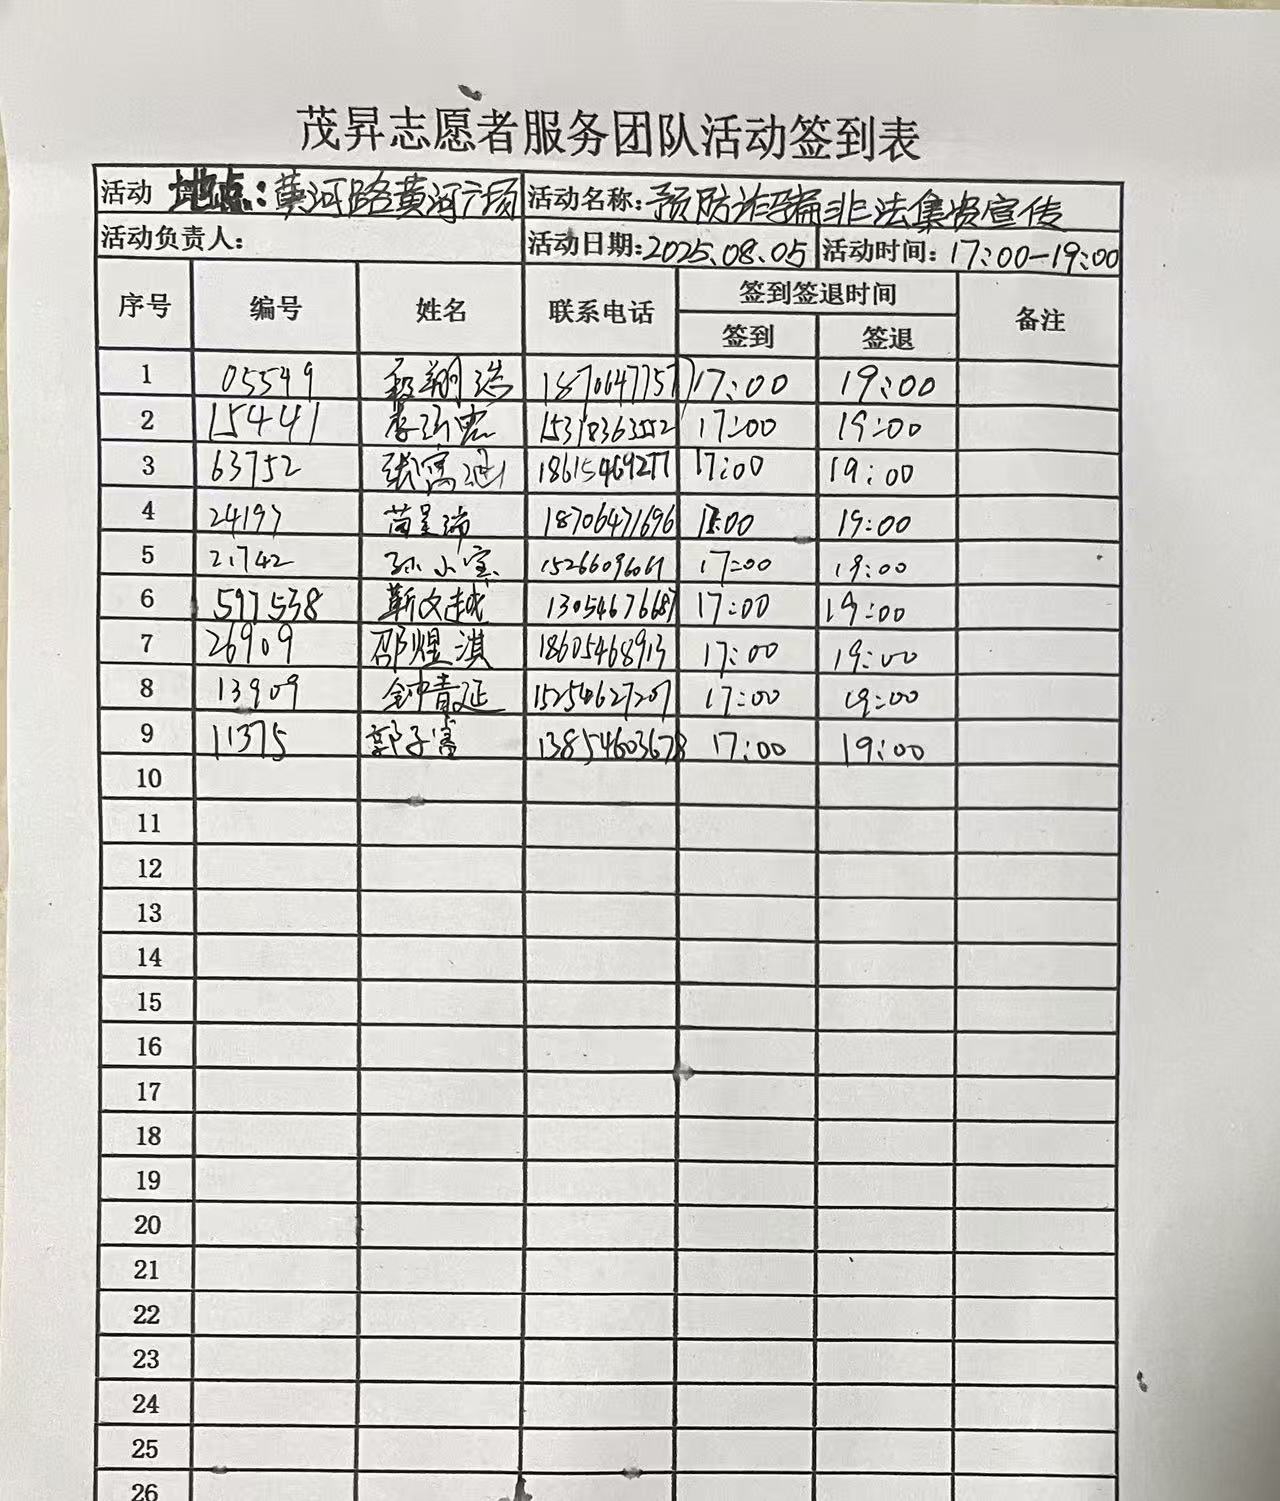 茂昇志愿者服务团队活动签到表
活动 地点：黄河路黄河广场 活动名称：预防诈骗非法集资宣传
活动负责人： 活动日期：2025.08.05 活动时间：17:00-19:00
序号 编号 姓名 联系电话 签到签退时间 备注
签到 签退
1 05549 翔浩 18706477577 17:00 19:00
2 15441 17:00 19:00
3 63752 张 18615469277 17:00 19:00
4 24197 苗呈瑞 18706471696 17:00 19:00
5 21742 孙小宝 15266096061 17:00 19:00
6 597538 靳文越 13054676687 17:00 19:00
7 26909 邵煜淇 18605468913 17:00 19:00
8 13909 钟青延 15254627207 17:00 19:00
9 11375 郭子富 13854603678 17:00 19:00
10
11
12
13
14
15
16
17
18
19
20
21
22
23
24
25
26